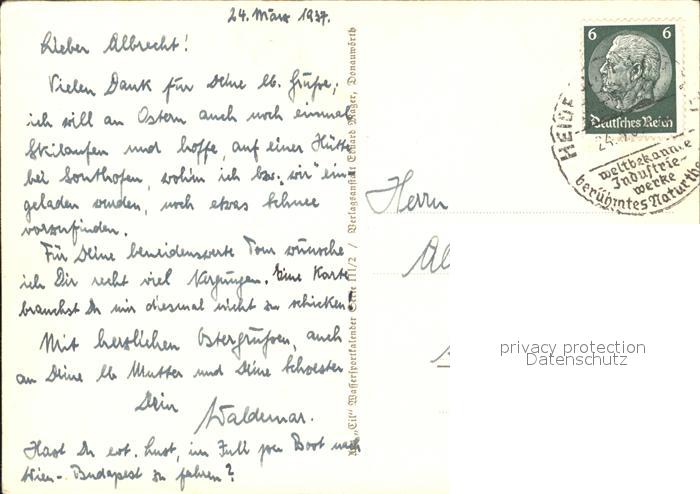 24. März 1937.
Lieber Albrecht!
Vielen Dank für Deine lb. Grüße;
ich will an Ostern auch noch einmal
Skilaufen und hoffe, auf einer Hütte
bei Sonthofen, wohin ich bzw. „wir" ein-
geladen wurden, noch etwas Schnee
vorzufinden.
Für Deine beneidenswerte Tour wünsche
ich Dir recht viel Vergnügen. Eine Karte
brauchst Du mir diesmal nicht zu schicken!
Mit herzlichen Ostergrüßen, auch
an Deine lb Mutter und Deine Schwester
Dein
Waldemar.
Hast Du evt. Lust, im Juli per Boot nach
Wien-Budapest zu fahren?
"Eil" Wassersportkalender Serie III/2 / Verlagsanstalt Eduard Mager, Donauwörth
6 6
Deutsches Reich
HEIDE
24.
weltbekannte
Industrie-
werke
berühmtes Naturthe
Herrn
Al
privacy protection
Datenschutz